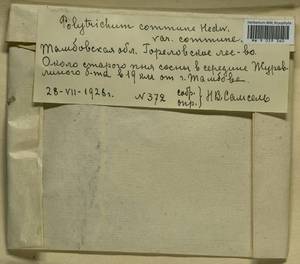 Polytrichum commune Hedw.
var. commune.
Тамбовская обл. Гореловское лес-во.
Около старого пня сосны в середине Журав-
линого б-та в 19 км от г. Тамбова
28-VII-1928г. N 372 собр. опр. } Н.В. Самсель